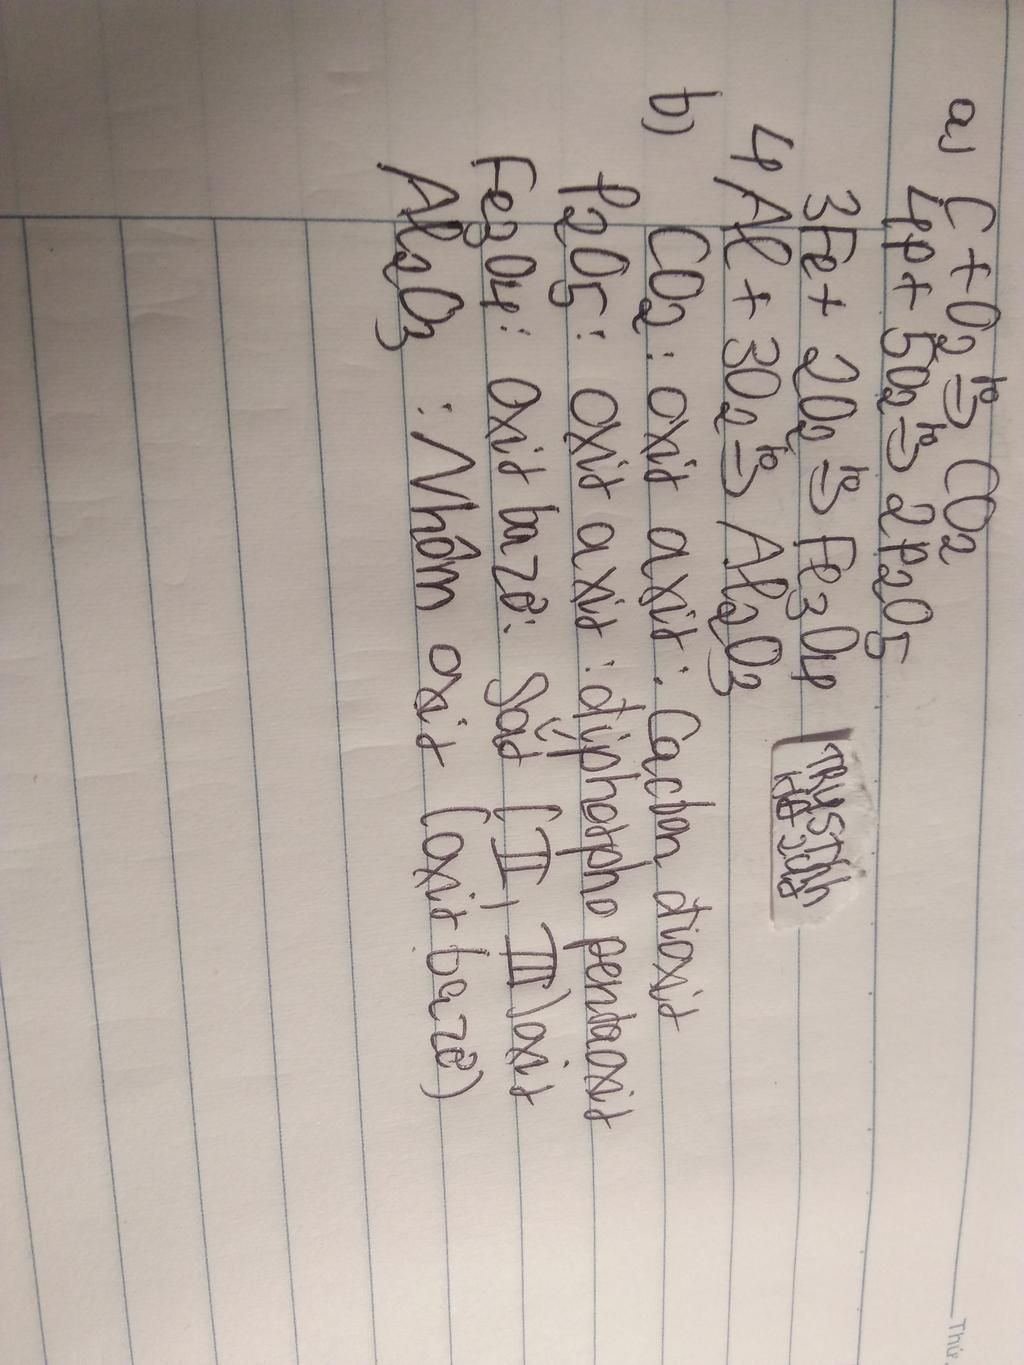 a) C + O2 t°→ CO2
4P + 5O2 t°→ 2P2O5
3Fe + 2O2 t°→ Fe3O4
4Al + 3O2 t°→ Al2O3
b) CO2 : oxit axit : Cacbon đioxit
P2O5 : oxit axit : điphotpho pentaoxit
Fe3O4 : oxit bazơ : sắt (II, III) oxit
Al2O3 : Nhôm oxit (oxit bazơ)
Thứ